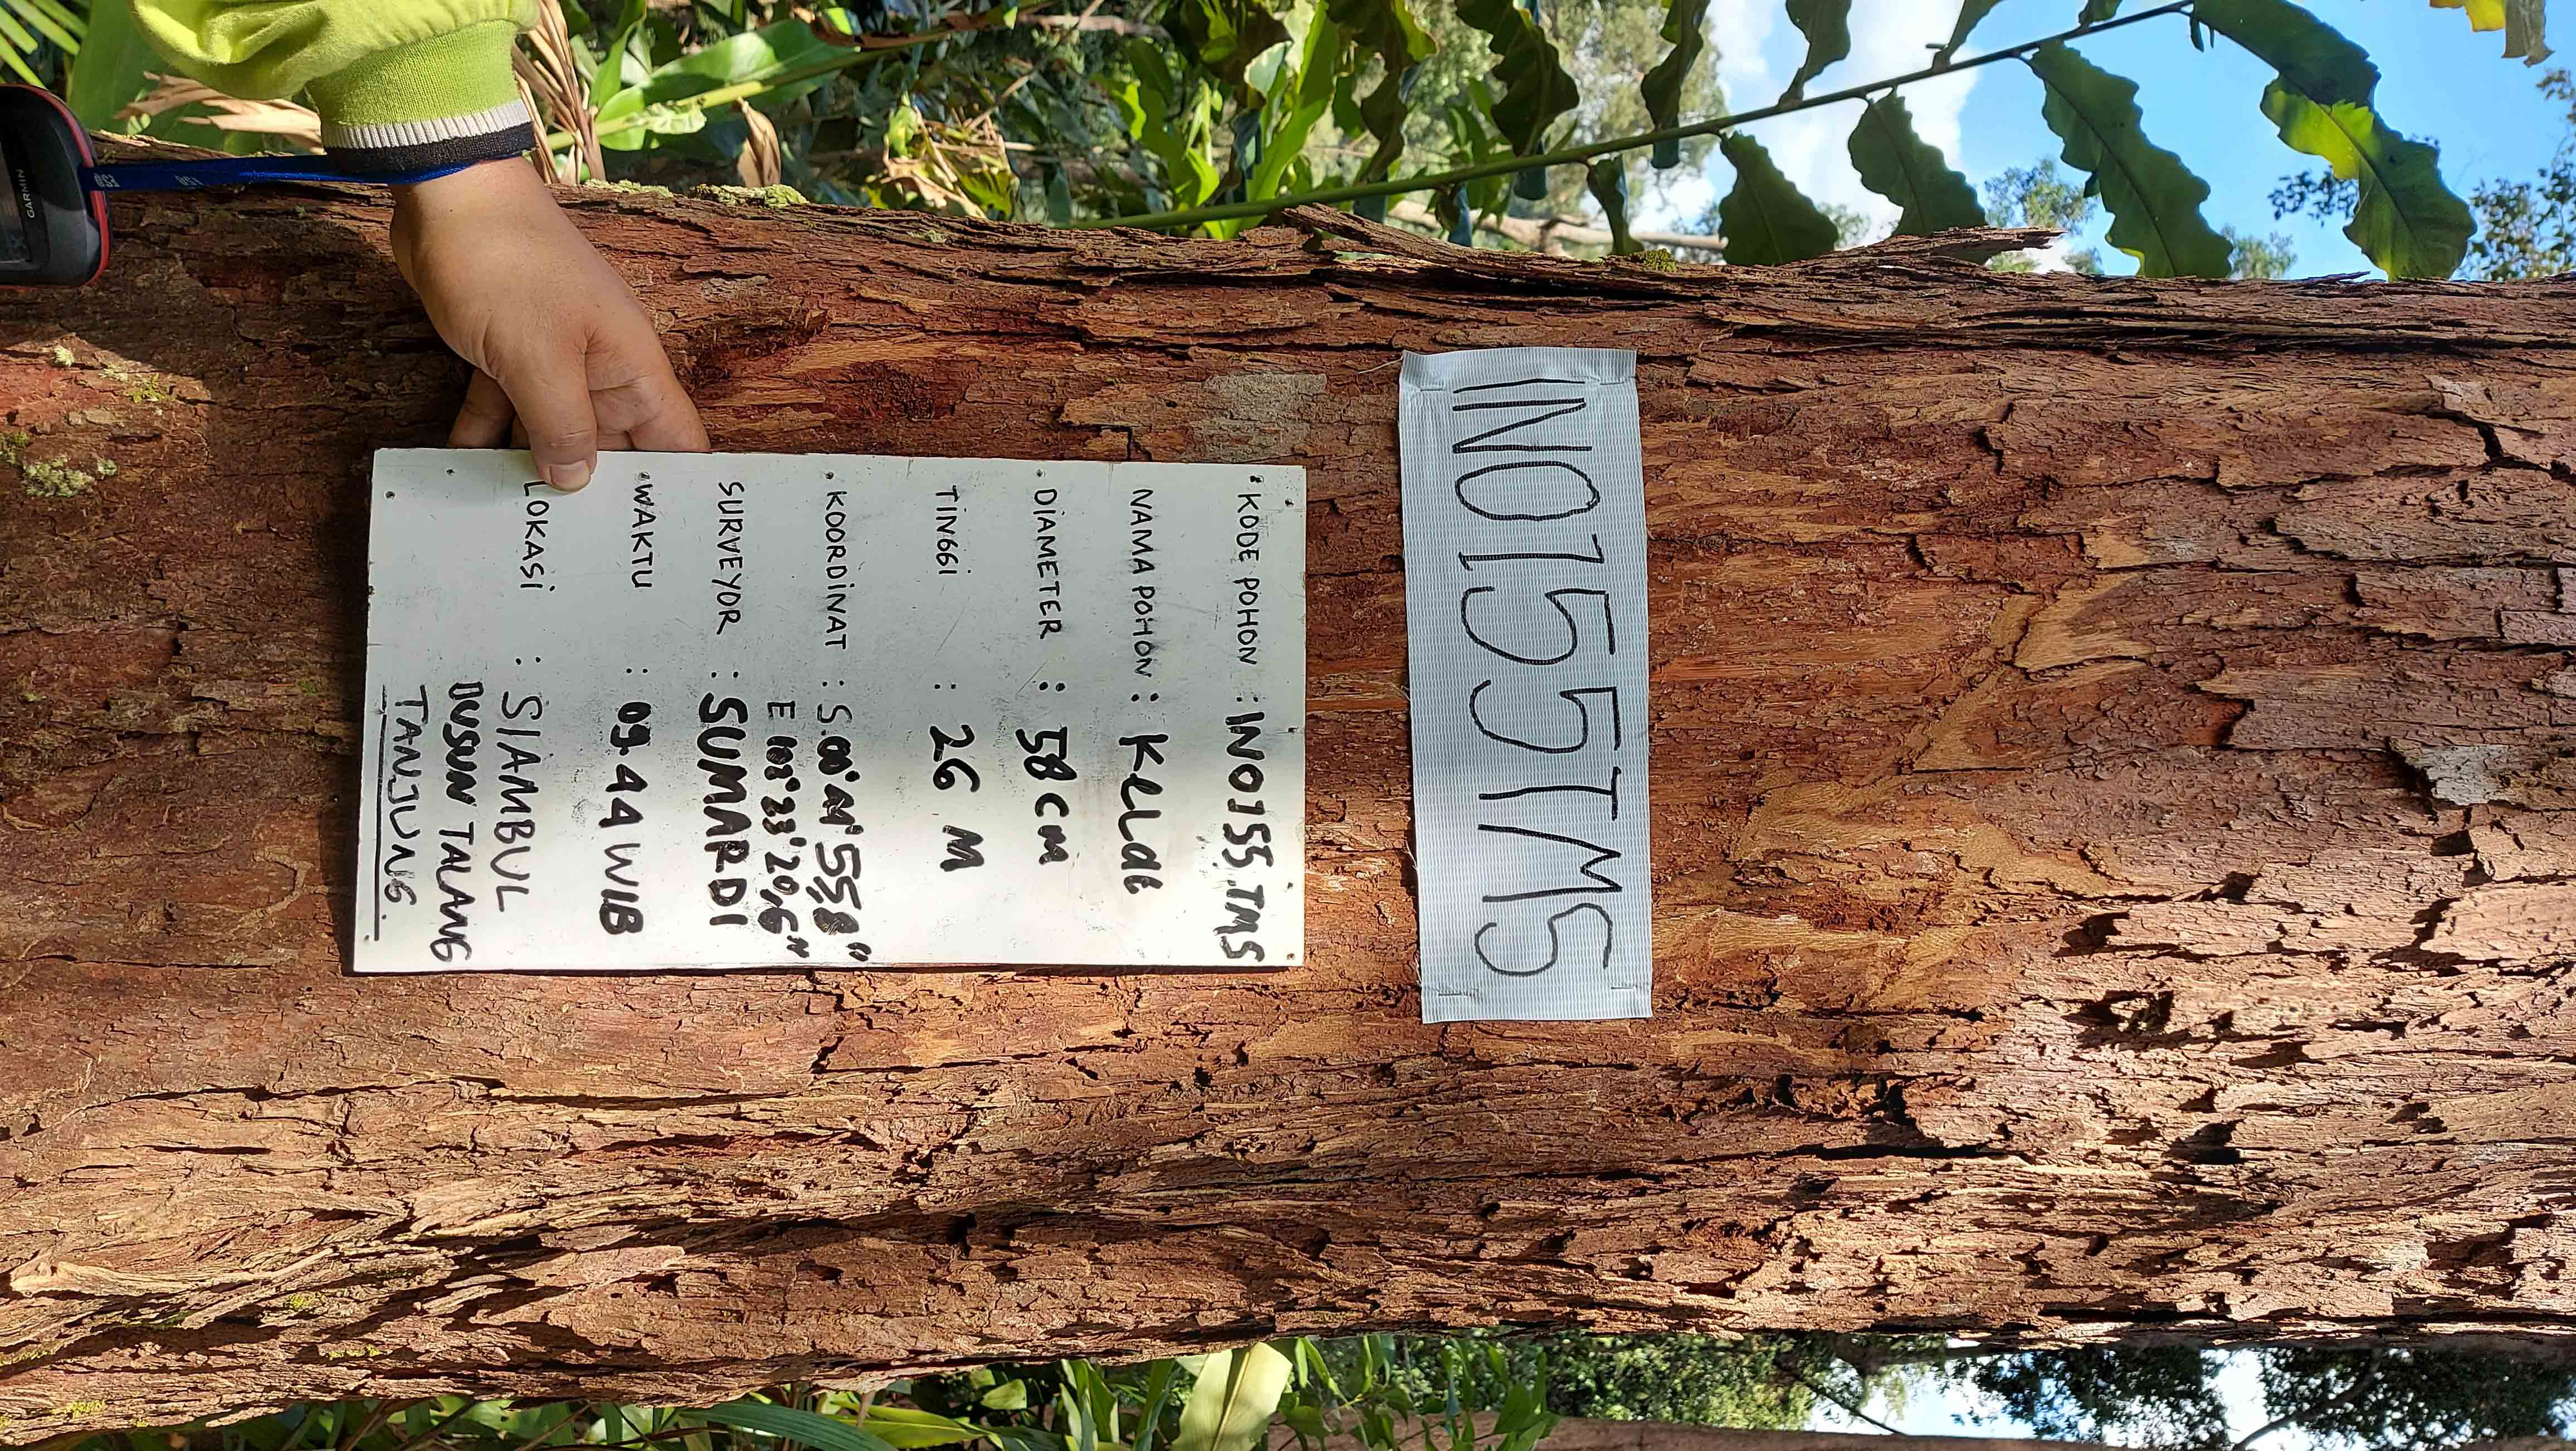 IN0155TMS
KODE POHON : IN0155.TMS
NAMA POHON : KELAT
DIAMETER : 58 CM
TINGGI : 26 M
KOORDINAT : S.00°44'55,8"
E 102°33'20,6"
SURVEYOR : SUMARDI
WAKTU : 09.44 WIB
LOKASI : SIAMBUL
DUSUN TALANG
TANJUNG
GARMIN